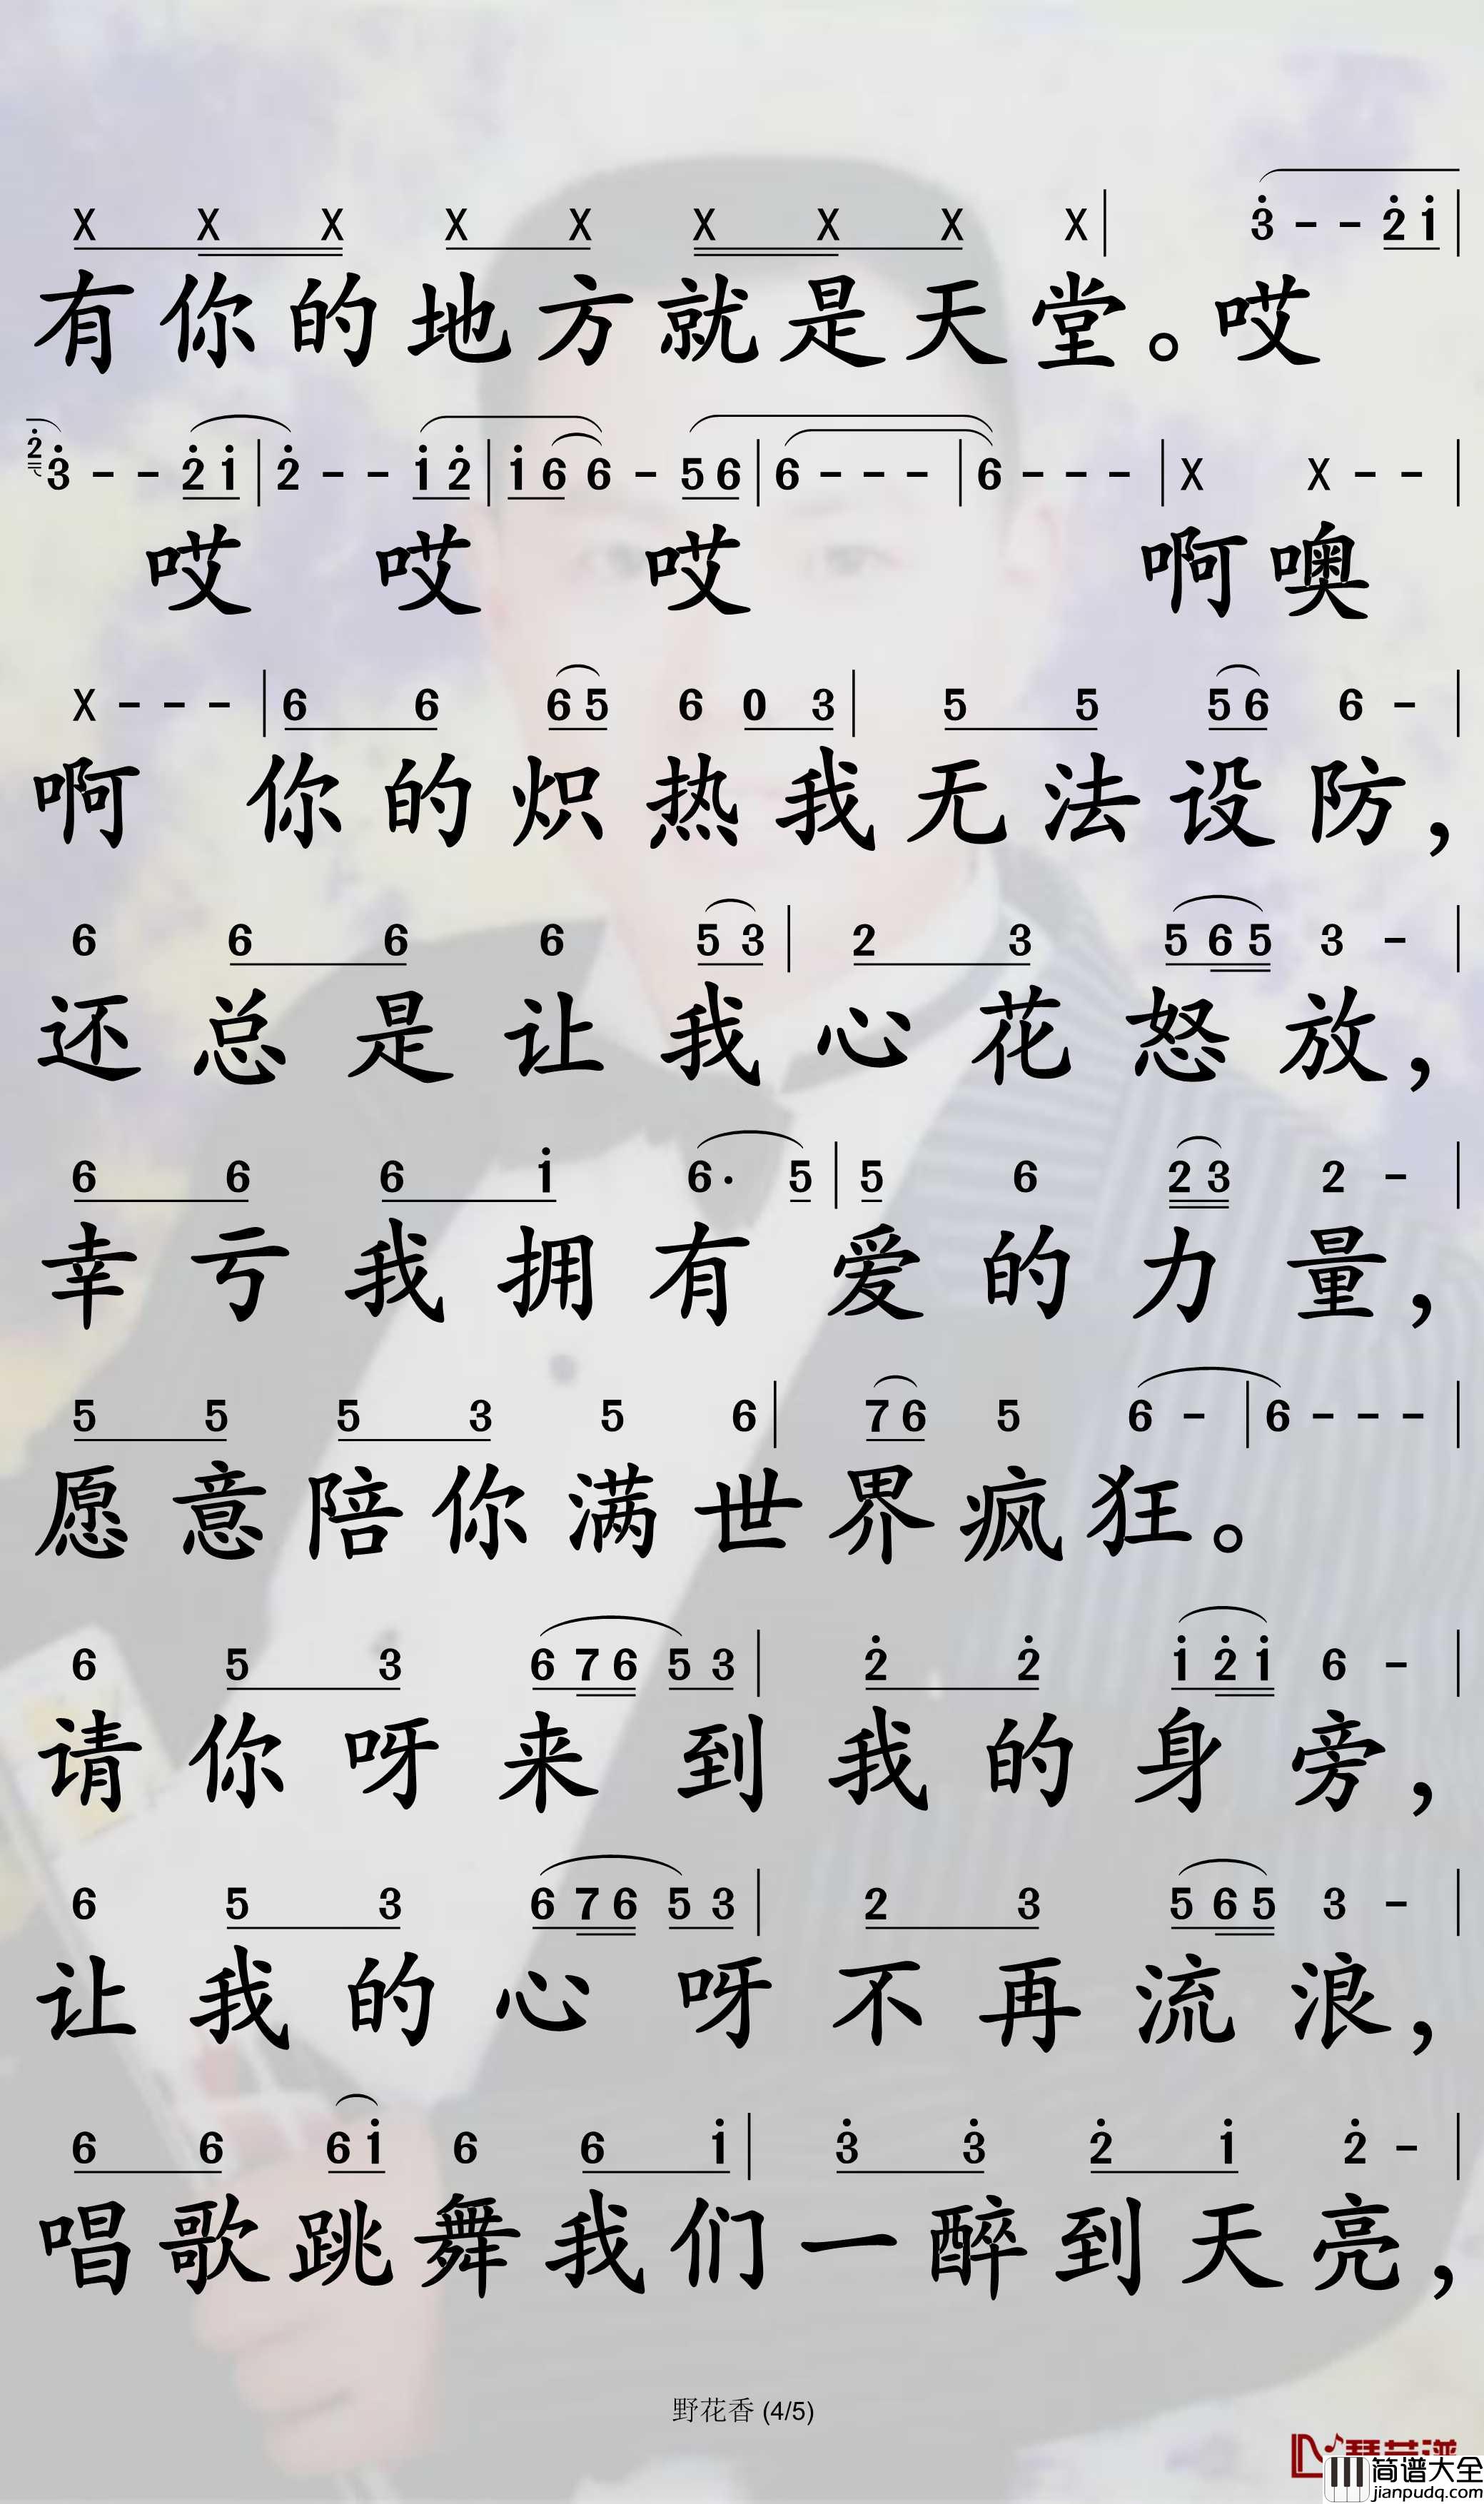 X X X X X X X X X | 3̇ - - 2̇ 1̇ |
有你的地方就是天堂。哎
2̇ 3̇ - - 2̇ 1̇ | 2̇ - - 1̇ 2̇ | 1̇ 6 6 - 5 6 | 6 - - - | 6 - - - | X X - - |
哎 哎 哎 啊噢
X - - - | 6 6 6 5 6 0 3 | 5 5 5 6 6 - |
啊 你的炽热我无法设防，
6 6 6 6 5 3 | 2 3 5 6 5 3 - |
还总是让我心花怒放，
6 6 6 1̇ 6· 5 | 5 6 2 3 2 - |
幸亏我拥有爱的力量，
5 5 5 3 5 6 | 7 6 5 6 - | 6 - - - |
愿意陪你满世界疯狂。
6 5 3 6 7 6 5 3 | 2̇ 2̇ 1̇ 2̇ 1̇ 6 - |
请你呀来到我的身旁，
6 5 3 6 7 6 5 3 | 2 3 5 6 5 3 - |
让我的心呀不再流浪，
6 6 6 1̇ 6 6 1̇ | 3̇ 3̇ 2̇ 1̇ 2̇ - |
唱歌跳舞我们一醉到天亮，
野花香 (4/5)
简谱大全
jianpudq.com